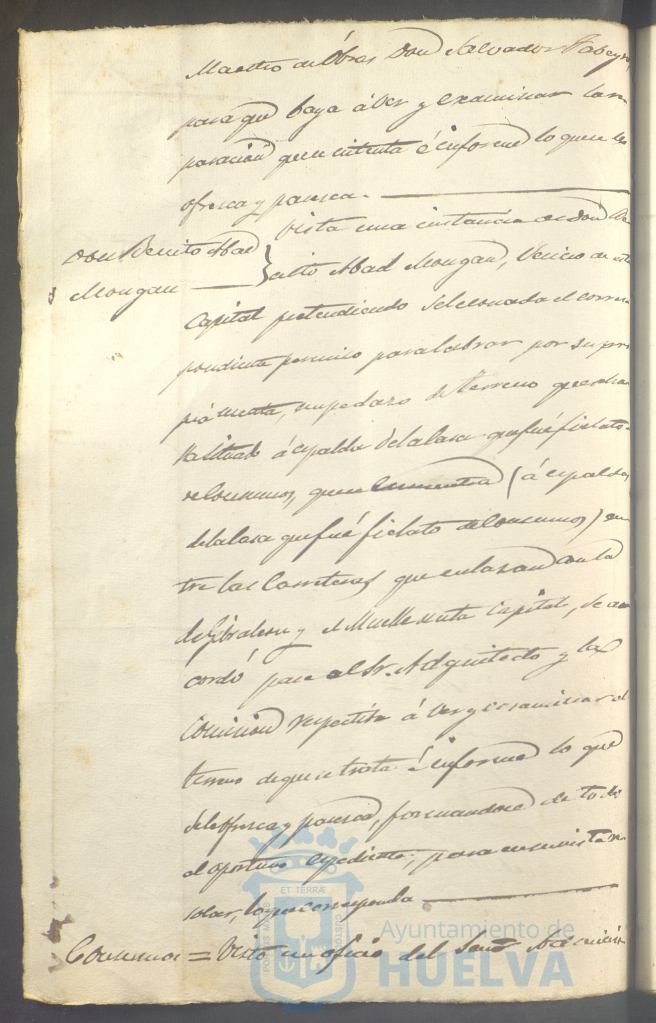 Maestro de Obras Don Salvador
para que baya á ver y examinar la re-
paracion que se intenta é informe lo que se le
ofresca y paresca.
Don Benito Abad
Mongan
Vista una instancia de Don Be-
nito Abad Mongan, Vecino de esta
Capital pretendiendo se le conceda el corres-
pondiente permiso para labrar por su pro-
pia cuenta, un pedazo de terreno que se ha-
lla situado á espalda de la casa que fué fielato
de Consumos, que se encuentra (á espalda
de la casa que fué fielato de Consumos) en-
tre las Carreteras que enlazan con la
de Gibraleon y el Muelle de esta Capital, se a-
cordó, pase al Sr. Arquitecto y la
Comision respectiva á ver y examinar el
terreno de que se trata é informe lo que
se le ofresca y paresca, formandose de todo
el oportuno espediente, para en su vista re-
solver, lo que corresponda
Consumos = Visto un oficio del Señor
ET TERRÆ
PORTUS MARIS
CUSTODIA
Ayuntamiento de
HUELVA